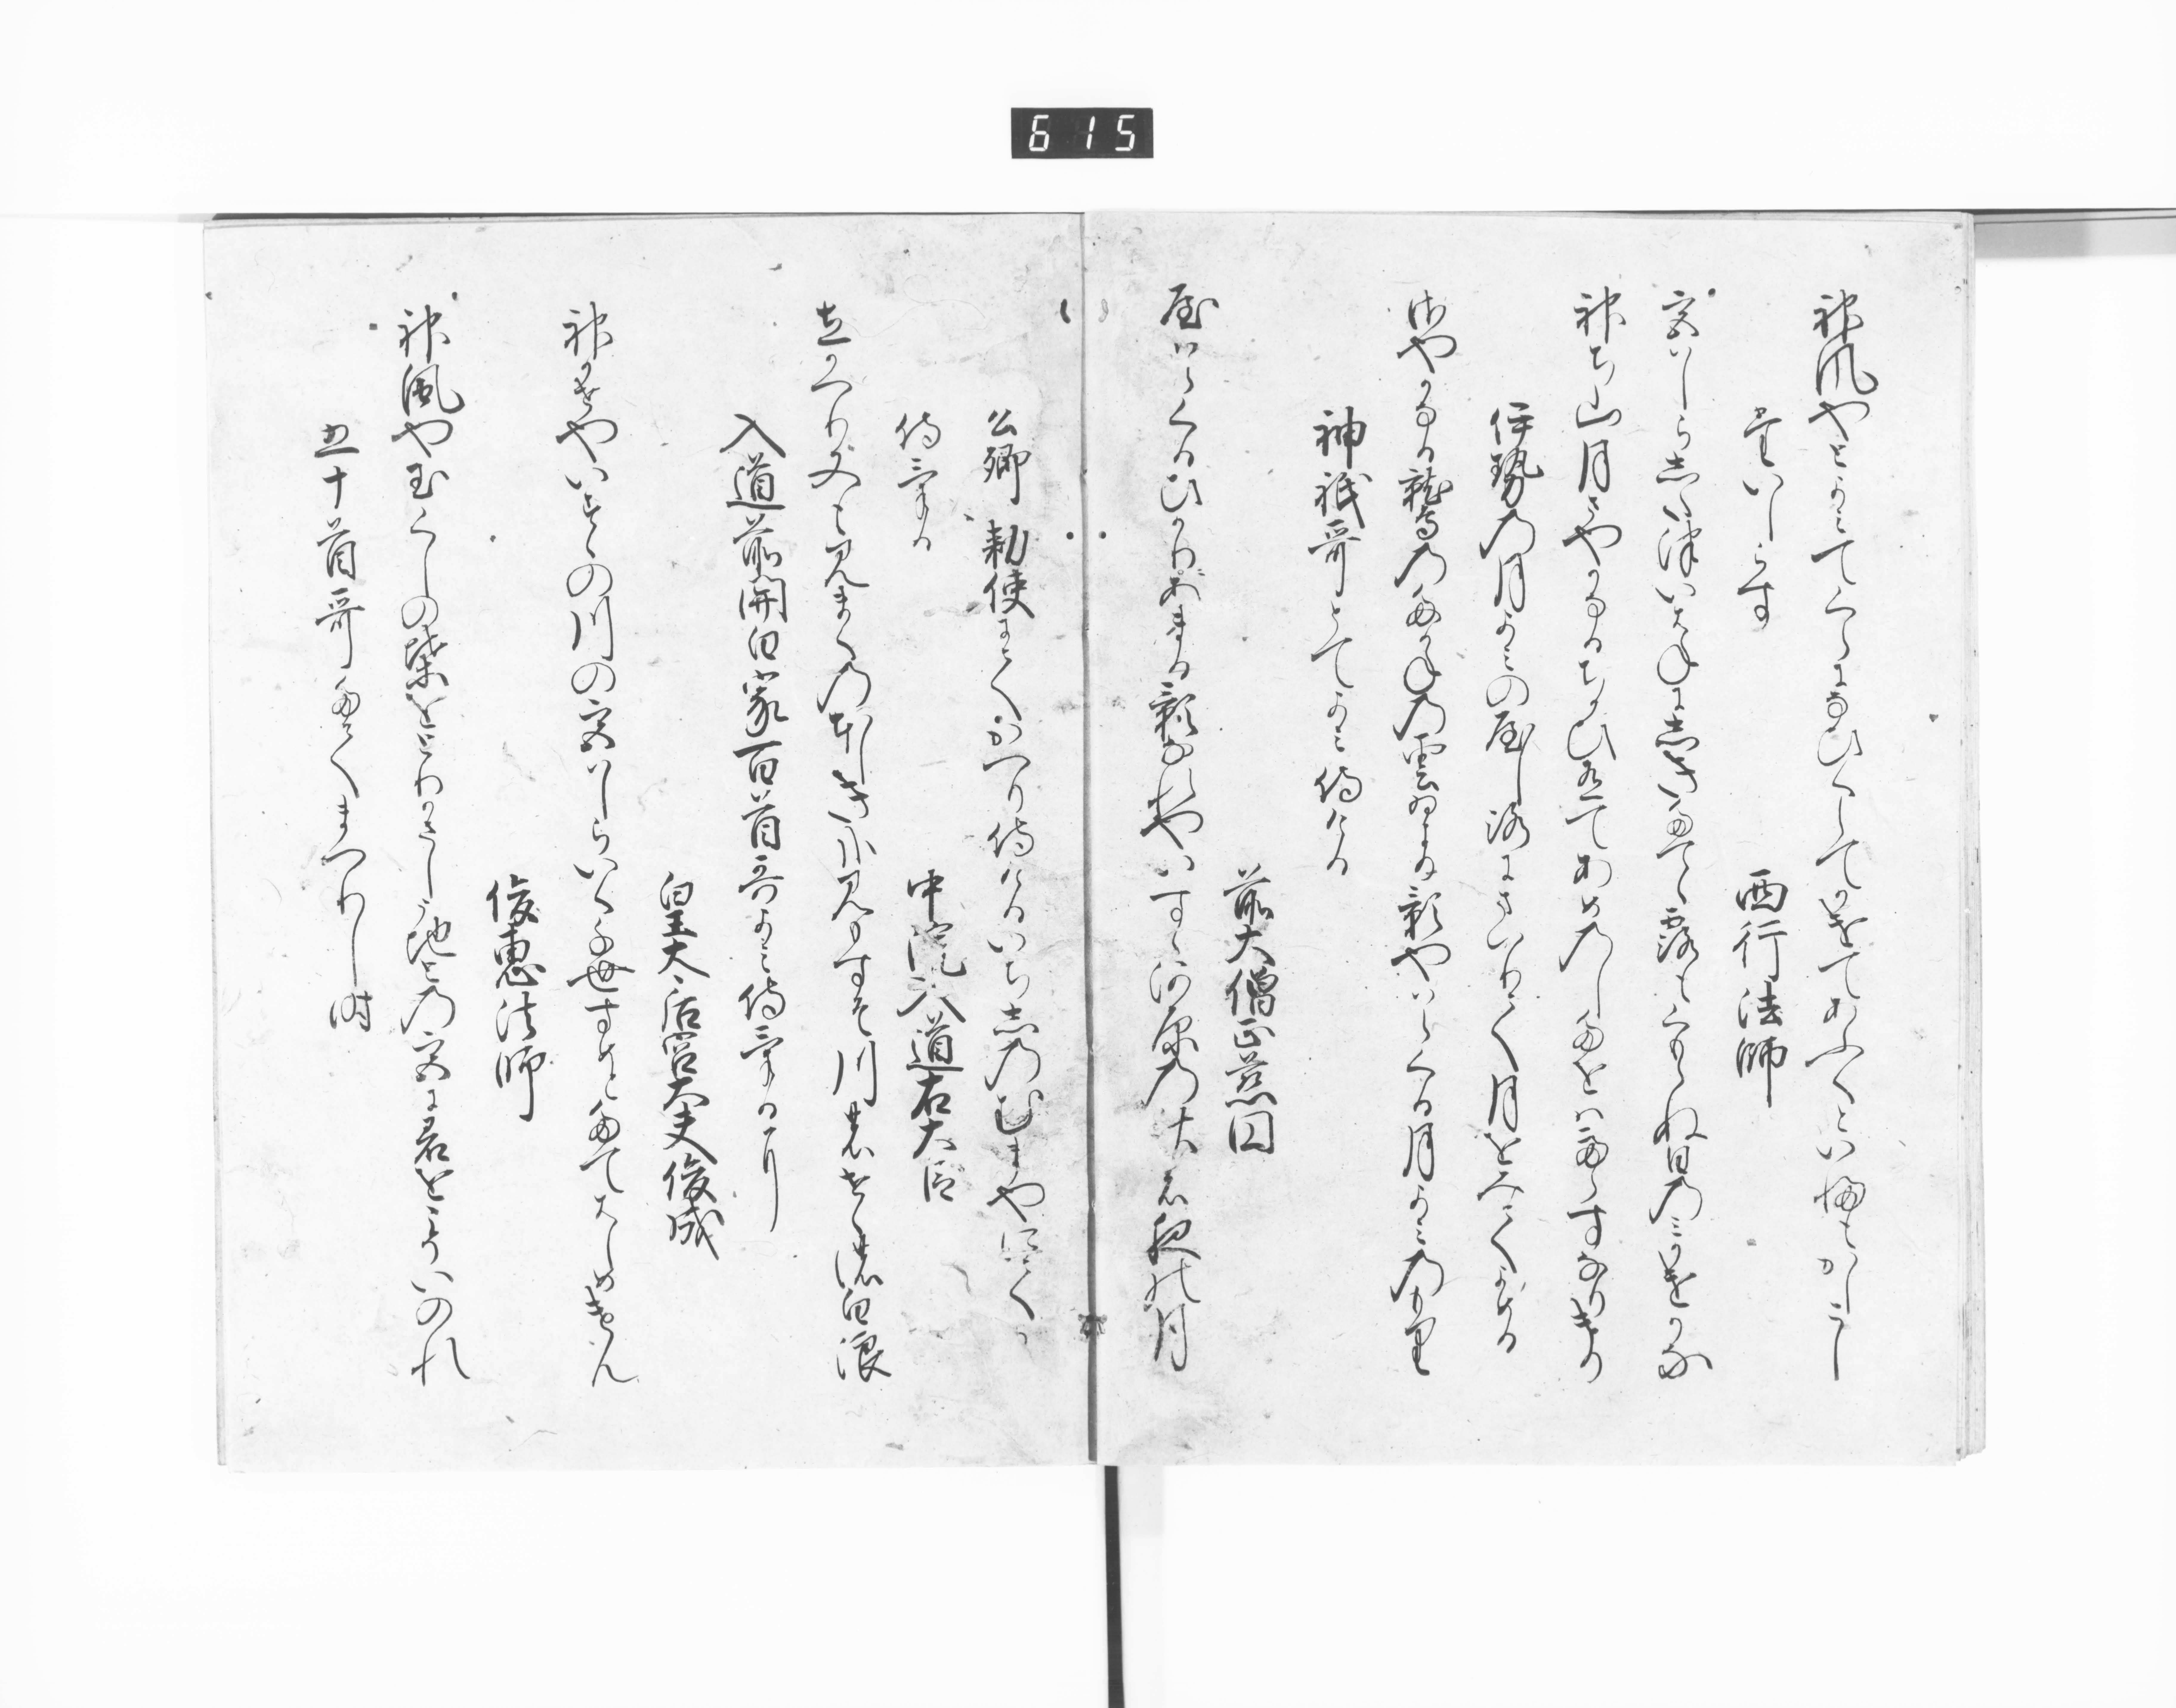 615
神風やとよみてくらになひくしてかけてあふくといふもかしこし
題しらす
西行法師
宮はしらしたつ岩ねにしきたてゝ露もくもらぬ日のみかけかな
神ち山月さやかなるちかひ有てあめのしたをはてらすなりけり
伊勢の月よみの社にまいりて月をみてよめる
さやかなる鷲のたかねの雲ゐより影やはらくる月よみのもり
神祇哥とてよみ侍ける
前大僧正慈円
やはらくるひかりにあまる影なれやいすゝ河原の秋の夜の月
公卿勅使にてかへり侍けるいちしのむまやにて
侍ける
中院入道右大臣
立かへり又も見まくのほしきかなみもすそ川のせゝの白浪
入道前関白家百首哥よみ侍けるに
皇太后宮大夫俊成
神かせやいすゝの川の宮はしらいく千世すめとたてはしめけん
俊恵法師
神風や玉くしの葉をとりかさしうちとの宮に君をこそいのれ
五十首哥たてまつりし時